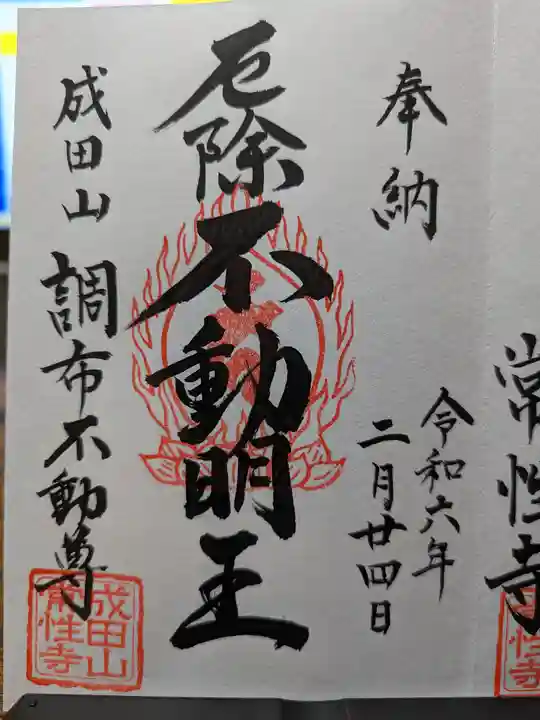 常性寺
奉納
令和六年
二月廿四日
厄除不動明王
成田山調布不動尊
成田山
常性寺